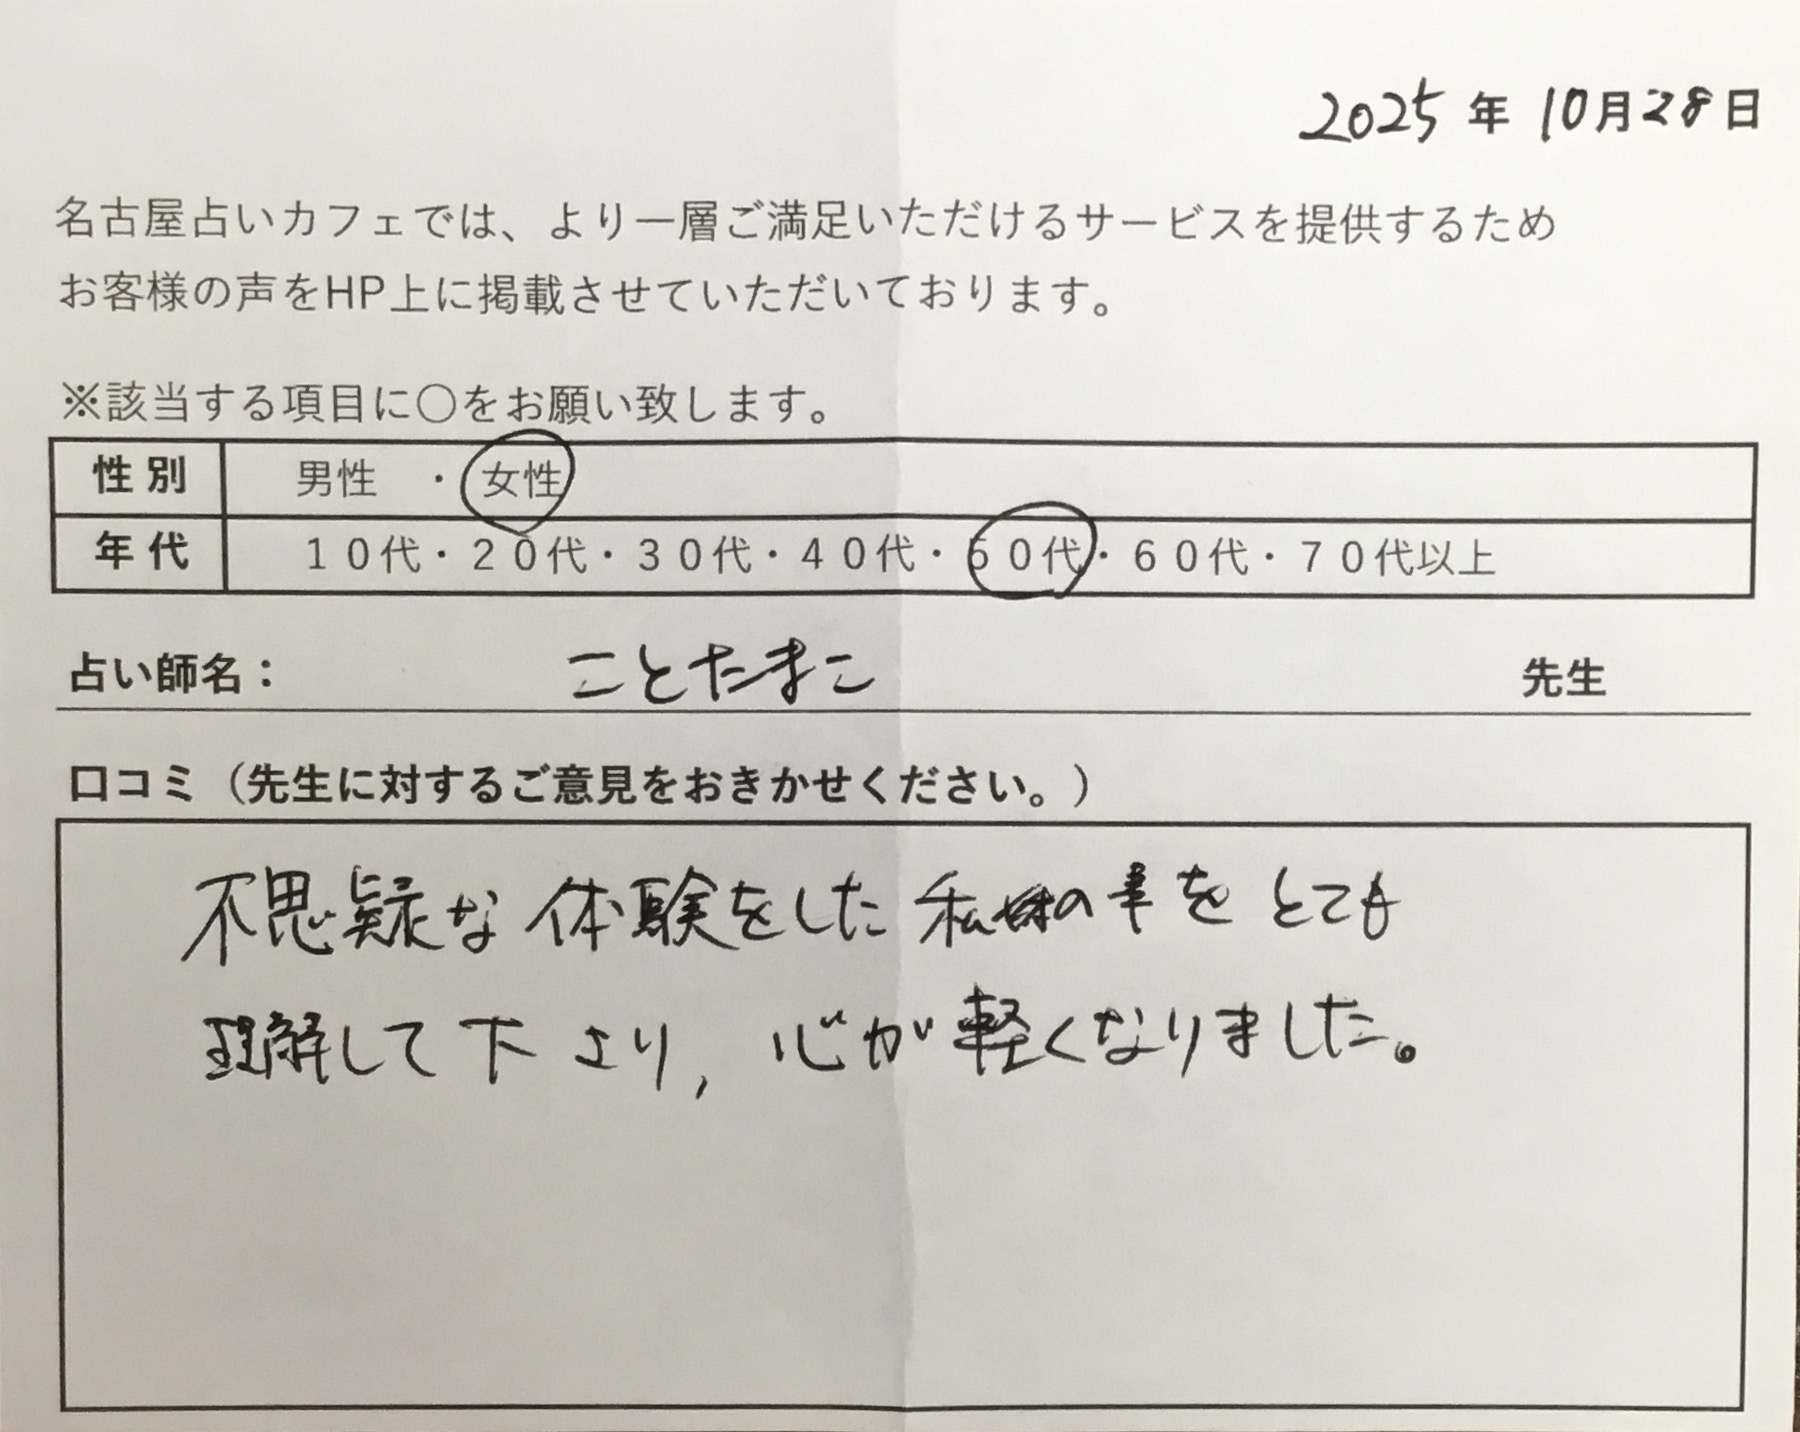 2025年 10月28日
名古屋占いカフェでは、より一層ご満足いただけるサービスを提供するため
お客様の声をHP上に掲載させていただいております。
※該当する項目に〇をお願い致します。
性別 男性 ・ 女性
年代 10代・20代・30代・40代・50代・60代・70代以上
占い師名: ことたまこ 先生
口コミ（先生に対するご意見をおきかせください。）
不思議な体験をした私の事をとても
理解して下さり, 心が軽くなりました。